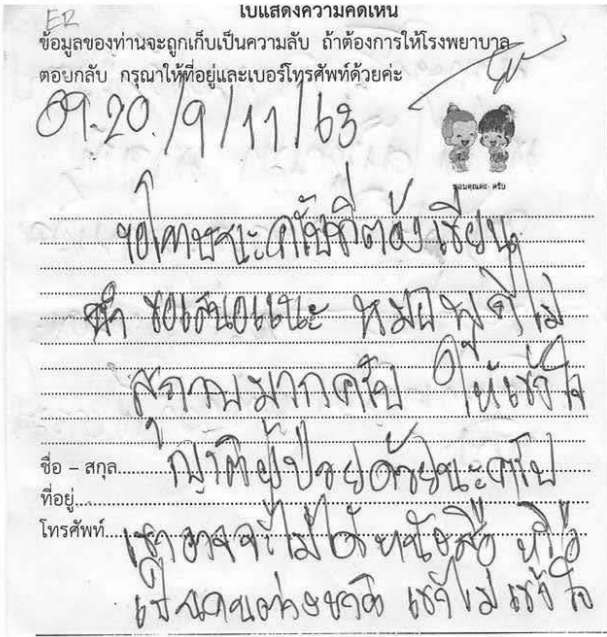 ER
ใบแสดงความคิดเห็น
ข้อมูลของท่านจะถูกเก็บเป็นความลับ ถ้าต้องการให้โรงพยาบาล
ตอบกลับ กรุณาให้ที่อยู่และเบอร์โทรศัพท์ด้วยค่ะ
09.20 /9/11/63
ขอบคุณค่ะ-ครับ
ขอโทษนะครับที่ต้องเขียน
คำ ขอเสนอแนะ หมอพูดไม่
สุภาพมากครับ ให้เข้าใจ
ชื่อ – สกุล ญาติผู้ป่วยด้วยนะครับ
ที่อยู่
โทรศัพท์ เขาอาจจะไม่ได้หนังสือ หรือ
เป็นคนต่างชาติ เขาไม่เข้าใจ